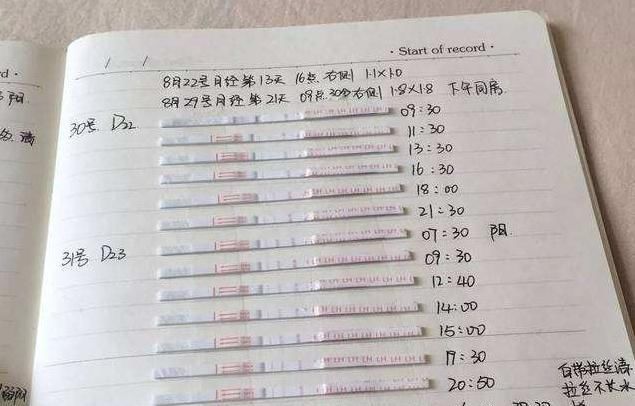 · Start of record ·
8月22号月经第13天 16点 右侧 1.1×1.0
8月29号月经第21天 09点30分右侧 1.8×1.8 下午同房
30号 D22
09:30
11:30
13:30
16:30
18:00
21:30
07:30 阳
31号 D23
09:30
12:40
14:00
15:00
17:30
20:50
白带拉丝清
拉丝不长水